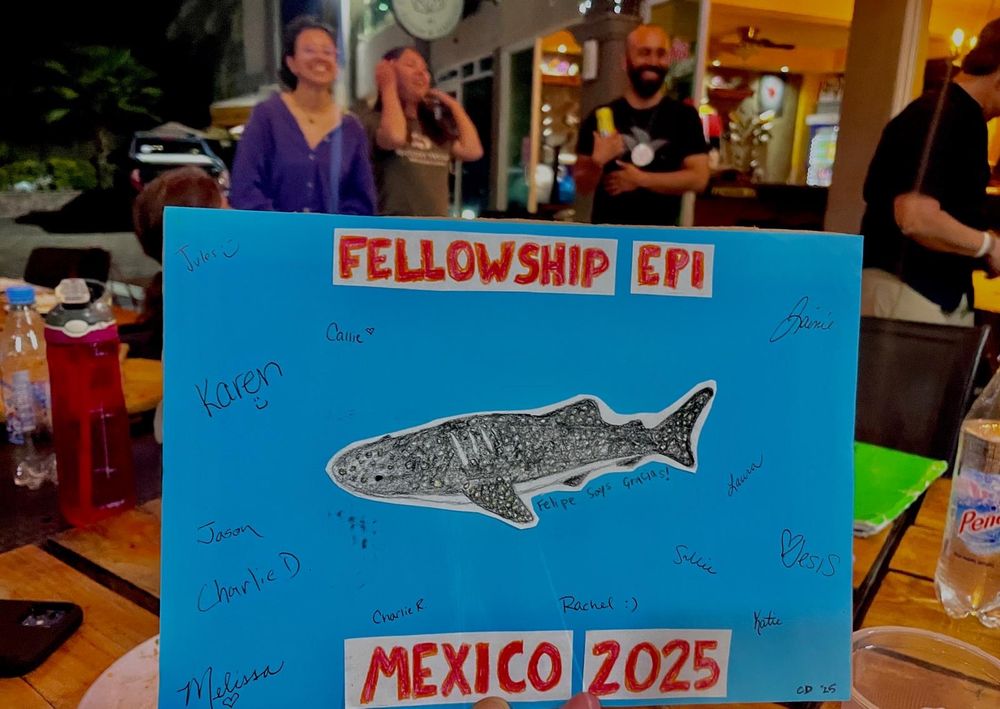 FELLOWSHIP EPI
Jules
Callie
Lainie
Karen
Felipe Says Gracias!
Laura
Jason
Sallie
Desis
Charlie D.
Charlie R
Rachel :)
Katie
Melissa
MEXICO 2025
CD '25